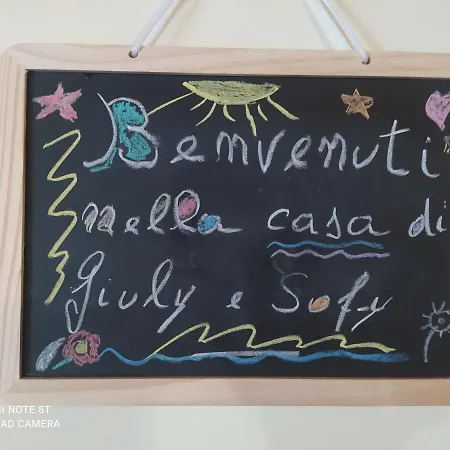 Benvenuti
nella casa di
Giuly e Sofy
MI NOTE 8T
AD CAMERA